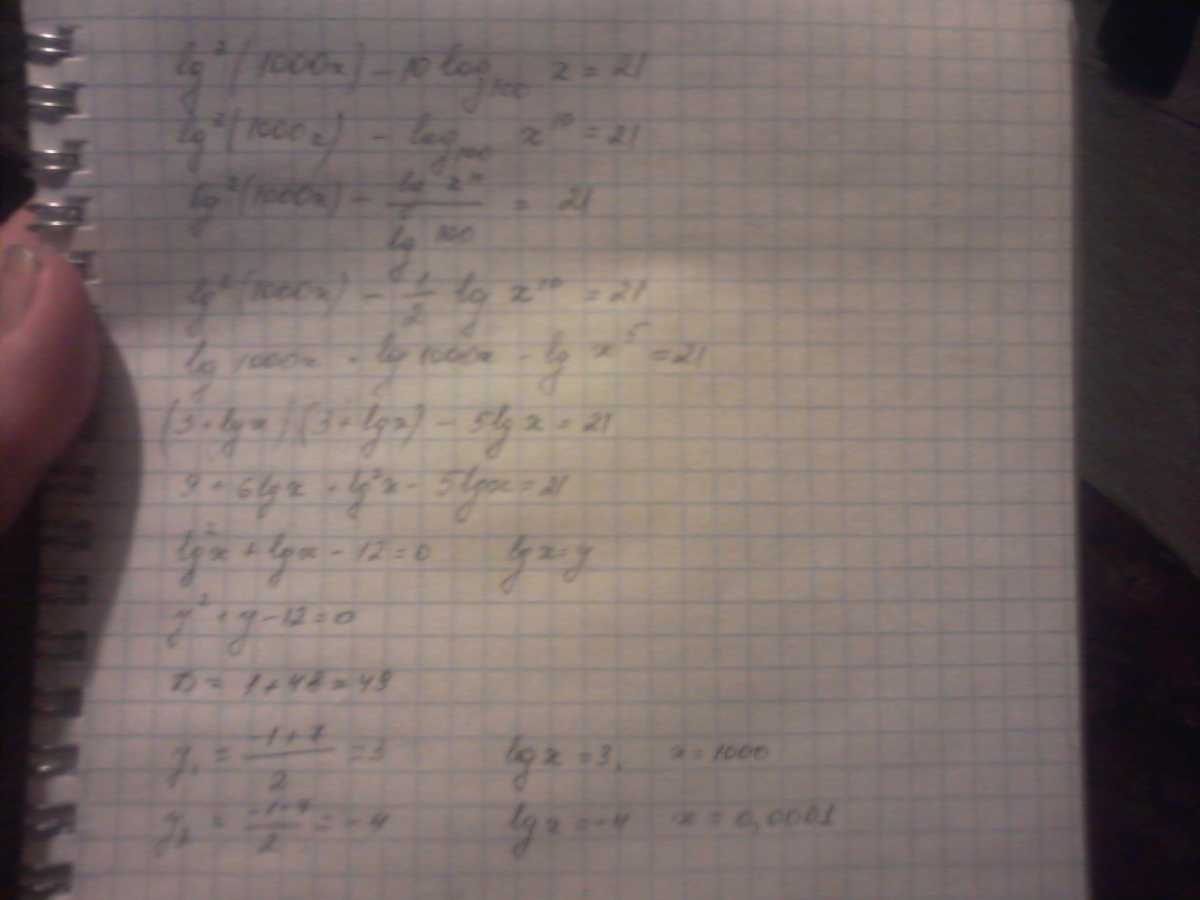 lg²(1000x) - 10 log₁₀₀ x = 21
lg²(1000x) - log₁₀₀ x¹⁰ = 21
lg²(1000x) - lg x¹⁰ / lg 100 = 21
lg²(1000x) - 1/2 lg x¹⁰ = 21
lg 1000x · lg 1000x - lg x⁵ = 21
(3 + lgx)(3 + lgx) - 5lgx = 21
9 + 6lgx + lg²x - 5lgx = 21
lg²x + lgx - 12 = 0 lgx = y
y² + y - 12 = 0
D = 1 + 48 = 49
y₁ = (-1+7)/2 = 3 lgx = 3, x = 1000
y₂ = (-1-7)/2 = -4 lgx = -4 x = 0,0001